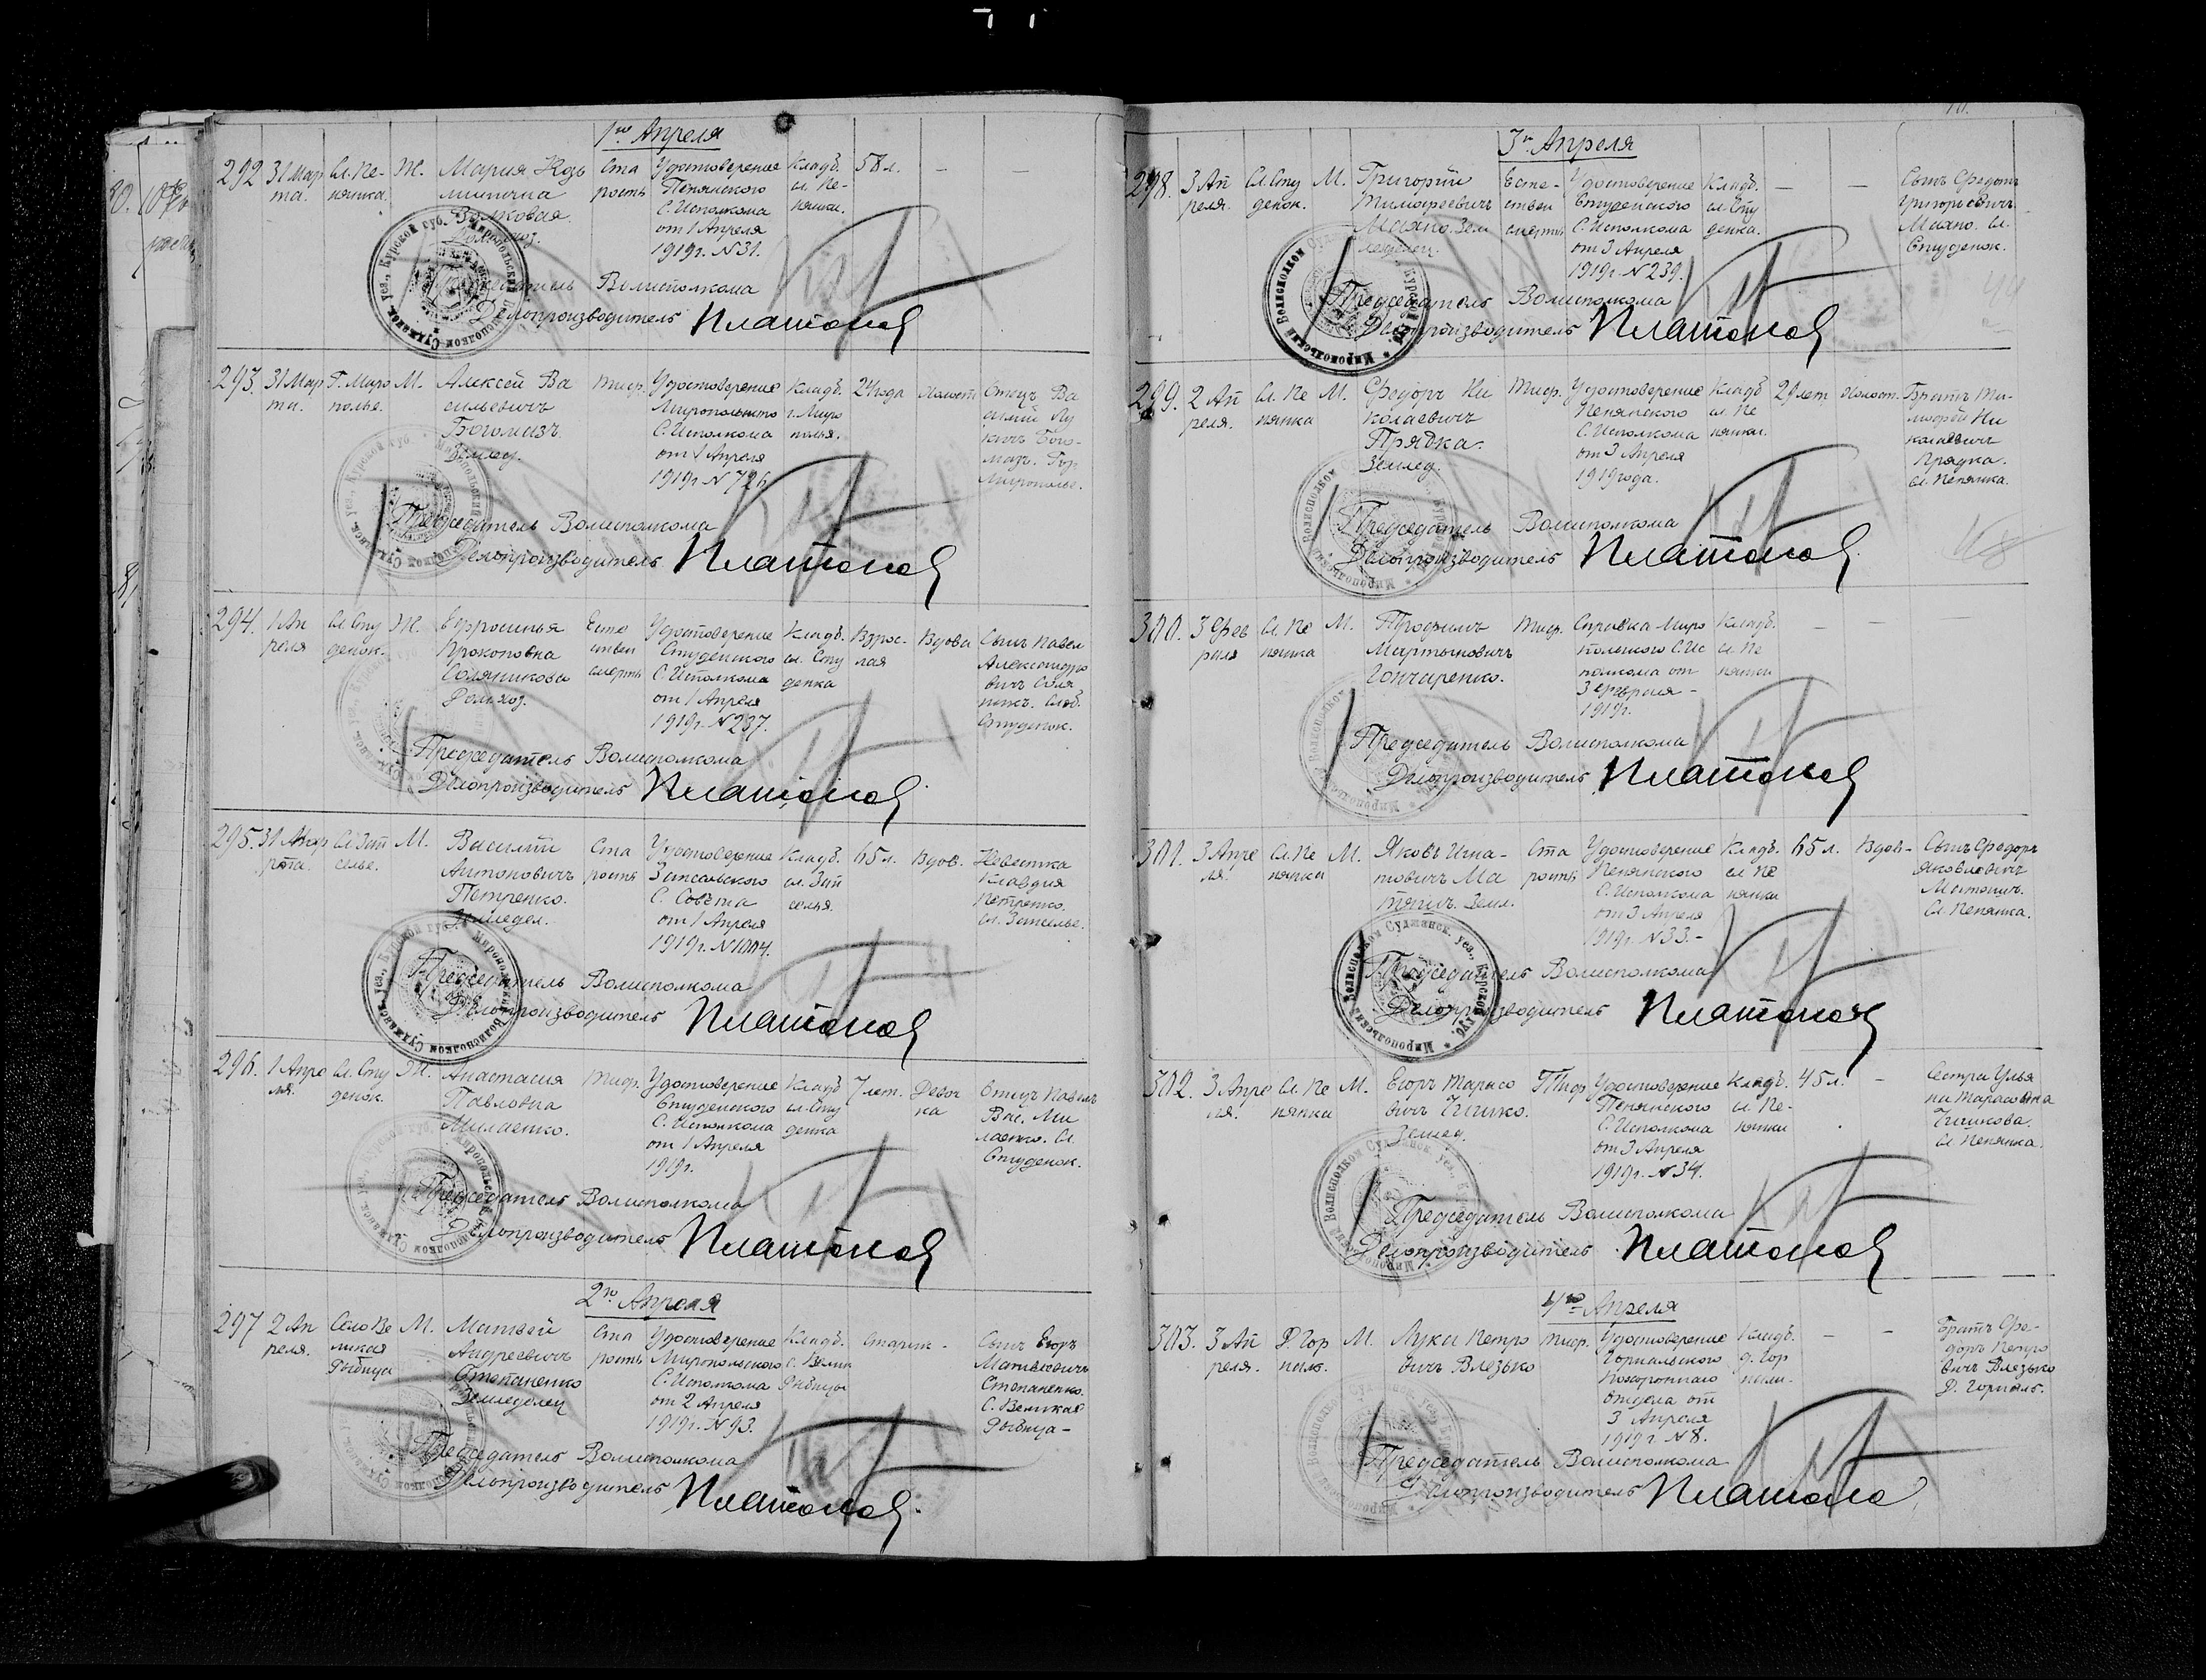 1го Апреля
292 31 Мар
та.
Сл. Пе-
нянка.
Ж.
Мария Козь
минична
Волковая.
Ста
рость
Удостоверение
Пенянского
С. Исполкома
от 1 Апреля
1919 г. N 31.
Кладб.
сл. Пе-
нянки.
58 л.
—
—
Председатель Волисполкома
Делопроизводитель Платонов
293. 31 Мар
та.
Г. Миро
полье.
М.
Алексей Ва
сильевичъ
Богомазъ.
Землед.
Тиф.
Удостоверение
Миропольского
С. Исполкома
от 1 Апреля
1919 г. N 726
Кладб.
г. Миро
полья.
24 года
Холост
Отец Ва
силий Лу
кичъ Бого-
мазъ. Гор.
Мирополье.
Председатель Волисполкома
Делопроизводитель Платонов
294. 1 Ап
реля
Сл. Сту
денок.
Ж.
Ефросинья
Прокоповна
Соляникова
Есте
ствен
смерть
Удостоверение
Студенского
С. Исполкома
от 1 Апреля
1919 г. N 237.
Кладб.
сл. Сту
денка
Взрос-
лая
Вдова
Сынъ Павел
Александро
вичъ Соля
никъ. Слоб.
Студенок.
Председатель Волисполкома
Делопроизводитель Платонов
295. 31 Мар
та.
Сл. Зап
селье.
М.
Василий
Антоновичъ
Петренко.
Земледел.
Ста
рость
Удостоверение
Запсельского
С. Совета
от 1 Апреля
1919 г. N 1004.
Кладб.
сл. Зап
селья.
65 л.
Вдов.
Невестка
Клавдия
Петренко.
сл. Запселье.
Председатель Волисполкома
Делопроизводитель Платонов
296. 1 Апре
ля.
Сл. Сту
денок.
Ж.
Анастасия
Павловна
Милаенко.
Тиф.
Удостоверение
Студенского
С. Исполкома
от 1 Апреля
1919 г.
Кладб
сл. Сту
денка
7 лет.
Девоч
ка
Отец Павелъ
Вас. Ми
лаенко. Сл.
Студенок.
Председатель Волисполкома
Делопроизводитель Платонов
2го Апреля
297 2 Ап
реля.
Село Ве
ликая
Рыбица
М.
Матвей
Андреевичъ
Степаненко
Земледелец
Ста
рость
Удостоверение
Миропольского
С. Исполкома
от 2 Апреля
1919 г. N 93.
Кладб.
с. Велик
Рыбицы
Старик -
Сынъ Егоръ
Матвеевичъ
Степаненко.
С. Великая
Рыбица -
Председатель Волисполкома
Делопроизводитель Платонов
3го Апреля
298. 3 Ап
реля.
Сл. Сту
денок.
М.
Григорий
Тимофеевичъ
Махно. Зем
леделец.
Есте-
ствен
смерть
Удостоверение
Студенского
С. Исполкома
от 3 Апреля
1919 г. N 239.
Кладб.
сл. Сту
денка.
—
—
Сынъ Федотъ
Григорьевичъ
Махно. Сл.
Студенок.
Председатель Волисполкома
Делопроизводитель Платонов
299. 2 Ап
реля.
Сл. Пе
нянка
М.
Федоръ Ни
колаевичъ
Прядка.
Землед.
Тиф.
Удостоверение
Пенянского
С. Исполкома
от 3 Апреля
1919 года.
Кладб
сл. Пе
нянки.
29 лет
Холост.
Братъ Ти-
мофей Ни
колаевичъ
Прядка.
Сл. Пенянка.
Председатель Волисполкома
Делопроизводитель Платонов
300. 3 Фев
раля
Сл. Пе
нянка
М.
Трофимъ
Мартыновичъ
Гончаренко.
Тиф.
Справка Миро
польского С. Ис
полкома от
3 Февраля -
1919 г.
Кладб.
сл. Пе
нянки
—
—
Председатель Волисполкома
Делопроизводитель Платонов
301. 3 Апре
ля.
Сл. Пе
нянка
М.
Яковъ Игна-
товичъ Ма
Земл.
Ста
рость
Удостоверение
Пенянского
С. Исполкома
от 3 Апреля
1919 г. N 33. -
Кладб.
сл. Пе
нянки
65 л.
Вдов-
Сынъ Федоръ
Яковлевичъ
Сл. Пенянка.
Председатель Волисполкома
Делопроизводитель Платонов
302. 3 Апре
ля.
Сл. Пе
нянка
М.
Егоръ Тарасо
вичъ Чинико.
Землед.
Тиф
Удостоверение
Пенянского
С. Исполкома
от 3 Апреля
1919 г. N 34.
Кладб.
сл. Пе-
нянки
45 л.
—
Сестра Улья
на Тарасовна
Чиникова.
Сл. Пенянка.
Председатель Волисполкома
Делопроизводитель Платонов
4го Апреля
303. 3 Ап
реля.
Д. Гор
наль.
М.
Лука Петро
вичъ Влезько
Тиф.
Удостоверение
Горнальского
Похоронного
отдела от
3 Апреля
1919 г N 8.
Кладб.
д. Гор
нали-
—
—
Братъ Фе-
доръ Петро
вичъ Влезько
Д. Горналь.
Председатель Волисполкома
Делопроизводитель Платонов